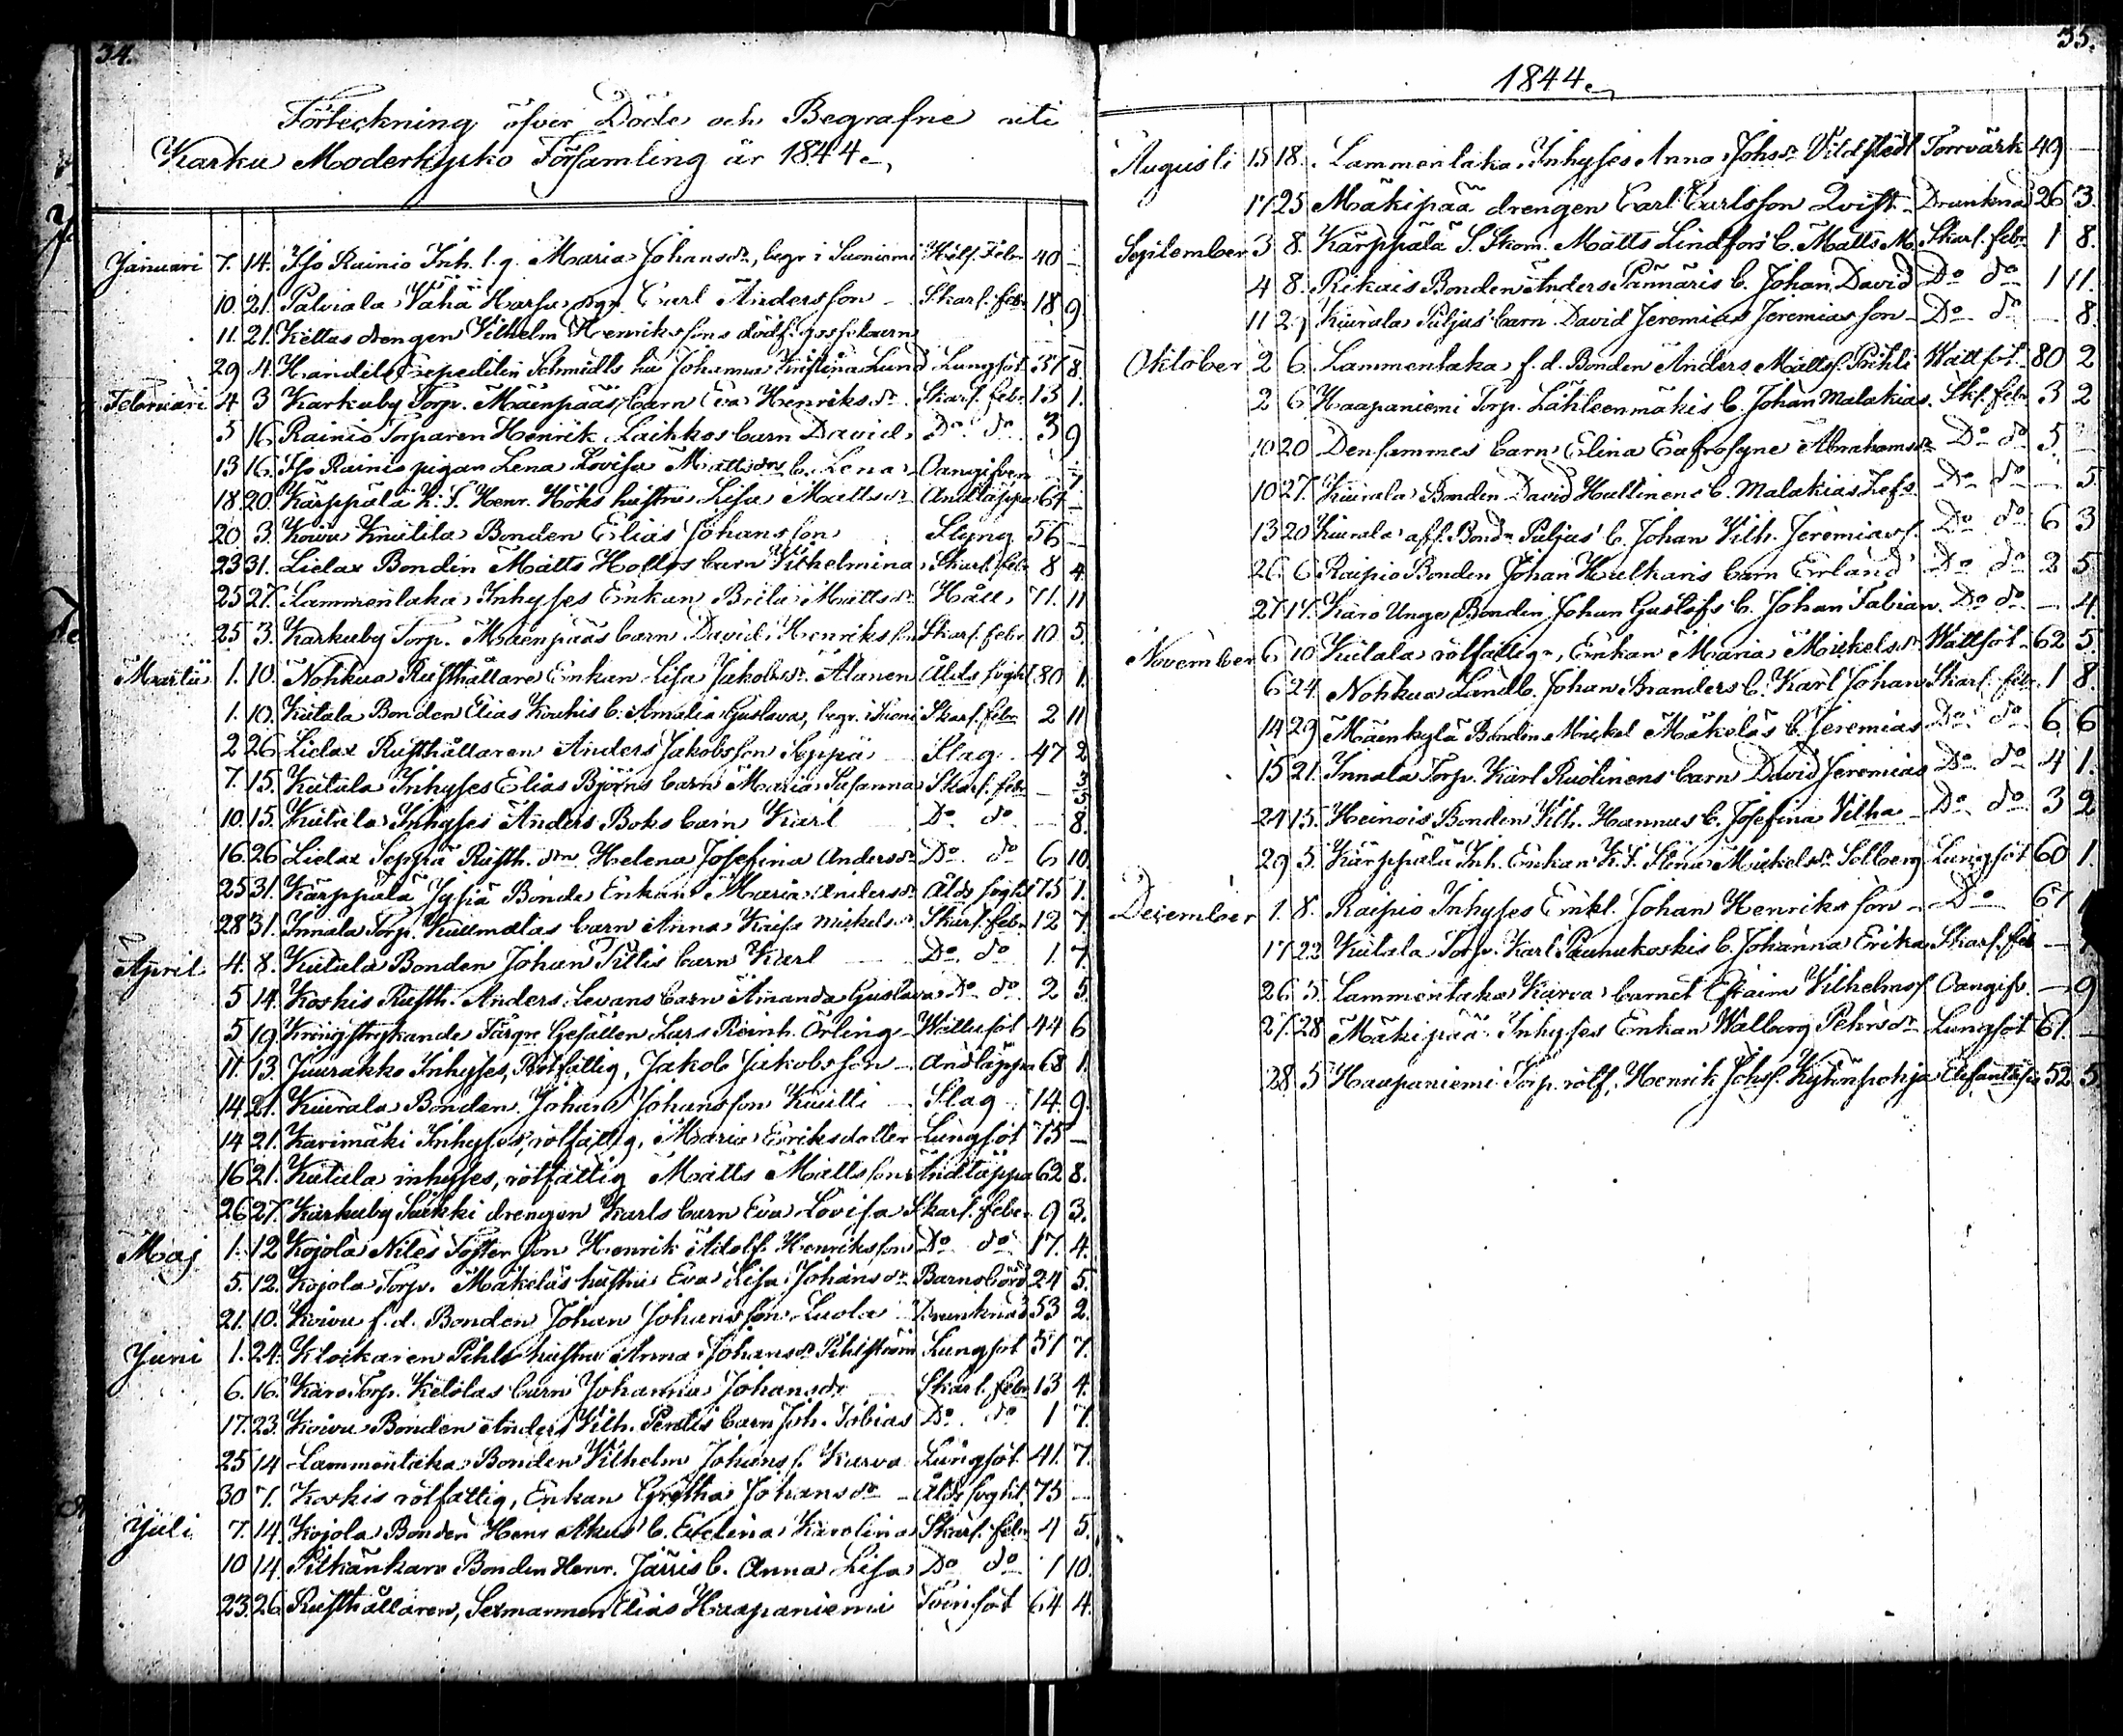 34.
Förteckning öfver Döde och Begrafne uti
Karku Moderkyrko Församling år 1844.
Januari 7. 14. Iso Rainio Inh. Maria Johansdr, begr. i Suoniemi 40 -
10. 21. Palviala Vähä Carl Andersson Skarl. febr 18 9
11. 21. Kettas drengen Vilhelm Henrikssons dödf. gossebarn
29 4. Schmidts hu Johanna Kristina Lund Lungsot 57 8
Februari 4 3 Karkuby Torp. Mäenpääs barn Eva Henriksdr Skarl. febr 13 1.
5 16 Rainio Torparen Henrik Laihkos barn David Do do 3 9
13 16. Iso Rainio pigan Lena Lovisa Mattsdrs b. Lena Oangifven
18 20. Kärppälä Henr. Höks hustru Lisa Mattsdr Andtäppa 64 -
20 3. Koivu Knutila Bonden Elias Johansson Styng 56 -
23 31. Lielax Bonden Matts Hollos barn Vilhelmina Skarl. febr 8 4
25 27. Lammentaka Inhyses Enkan Brita Mattsdr Håll 71. 11
25 3. Karkuby Torp. Mäenpääs barn David Henriksson Skarl. febr 10 5.
Martii 1. 10. Nohkua Rusthållare Enkan Lisa Jakobsdr Alanen Ålds svght 80 1.
1. 10. Kutala Bonden Elias Kouhis b. Amalia Gustava, begr. i Suoni Skarl. febr 2 11
2 26 Lielax Rusthållaren Anders Jakobsson Seppä Slag 47 2
7. 15. Kutala Inhyses Elias Björns barn Maria Susanna Skarl. febr -
10. 15. Kutala Inhyses Anders Boks barn Karl Do do - 8.
16. 26 Lielax Seppä Rusth. dr. Helena Josefina Andersdr Do do 6 10.
25 31. Kärppälä Jyssä Bonde Enkan Maria Andersdr Ålds svght 75 1.
28 31. Innala Torp. barn Anna Kaisa Mickelsdr Skarl. febr 12 7.
April 4. 8. Kutala Bonden Johan Tillis barn Karl Do do 1. 7.
5 14. Koskis Rusth. Anders Levans barn Amanda Gustava Do do 2 5.
5 19. Kringstrykande Färgre Gesällen Lars Reinh. Örling Wattusot 44 6
11. 13. Juurakko Inhyses, Rotfattig, Jakob Jakobsson Andtäppa 68 1.
14 21. Kiurala Bonden Johan Johansson Kuitti Slag 14. 9.
14 21. Karimäki Inhyses, rotfattig, Maria Eriksdotter Lungsot 75 -
16 21. Kutala inhyses, rotfattig Matts Mattsson Andtäppa 62 8.
26 27. Karkuby Sukki drengen Karls barn Eva Lovisa Skarl. febr 9 3.
Maj 1. 12 Kojola Niles Son Henrik Adolf Henriksson Do do 17. 4.
5. 12. Kojola Torp. Mäkeläs hustru Eva Lisa Johansdr Barnsbörd 24 5.
21. 10. Koivu f. d. Bonden Johan Johansson Luola Drunknad 53 2.
Juni 1. 24. Klockaren Pihls hustru Anna Johansdr Pihlström Lungsot 51 7.
6. 16. Karo Torp. Ketolas barn Johanna Johansdr Skarl. febr 13 4.
17. 23. Koivu Bonden Anders Vilh. Pentis barn Joh. Tobias Do do 1 7.
25 14 Lammentaka Bonden Vilhelm Johanss. Karva Lungsot 41. 7.
30 7. Koskis rotfattig, Enkan Gretha Johansdr Ålds svght. 75 -
Juli 7. 14. Kojola Bonden Henr. Akus b. Evelina Karolina Skarl. febr 4 5.
10 14. Pitkänkaro Bonden Henr. Järris b. Anna Lisa Do do 1 10.
23. 26 Rusthållaren, Sexmannen Elias Haapaniemi Tvinsot 64 4.
35.
1844.
Augusti 15 18. Lammentaka Inhyses Anna Johsdr Vildstedt Torrvärk 49 -
17 25 Mäkipää drengen Carl Carlsson Qvist Drunknad 26 3.
September 3 8. Kärppälä S. Skom. Matts Lindfors b. Matts M. Skarl. febr 1 8.
4 8. Rekais Bonden Anders Pännäris b. Johan David Do do 1 11.
11 29 Kiurala Puljus barn David Jeremias Jeremiasson Do do - 8.
Oktober 2 6. Lammentaka f. d. Bonden Anders Mattss. Prihti Wattsot 80 2
2 6 Haapaniemi Torp. Lähteenmäkis b. Johan Malakias Sk. febr 3 2
10 20 Densammes barn Elina Eufrosyne Abrahamsdr Do do 5 -
10 27. Kiurala Bonden David Hallinens b. Malakias Do do - 5
13 20 Kiurala Bondn Puljus b. Johan Vilh. Jeremiass. Do do 6 3
26 6 Raipio Bonden Johan Hulkaris barn Erland Do do 2 5
27 17. Karo Unge Bonden Johan Gustafs b. Johan Fabian Do do - 4.
November 6 10 Kutala rotfattig, Enkan Maria Mickelsdr Wattsot 62 5
6 24. Nohkua Landb. Johan Branders b. Karl Johan Skarl. febr 1 8.
14 29 Mäenkylä Bonden Mickel Mäkeläs b. Jeremias Do do 6. 6
15 21. Innala Torp. Karl Ruolinens barn David Jeremias Do do 4 1.
24 15. Heinois Bonden Vilh. Hannus b. Josefina Vilha Do do 3 2
29 5. Kärppälä Inh. Enkan Stina Mickelsdr Solberg Lungsot 60 1.
December 1. 8. Raipio Inhyses Enkl. Johan Henriksson Do 67
17. 22 Kutala Torp. Karl Paunukoskis b. Johanna Erika Skarl. feb -
26 5. Lammentaka Karva barnet Efraim Vilhelmss. Oangifv. - 9
27. 28 Mäkipää Inhyses Enkan Walborg Pehrsdr Lungsot 61. -
28. 5 Haapaniemi Torp. rotf. Henrik Johss. Kytönpohja 52 5